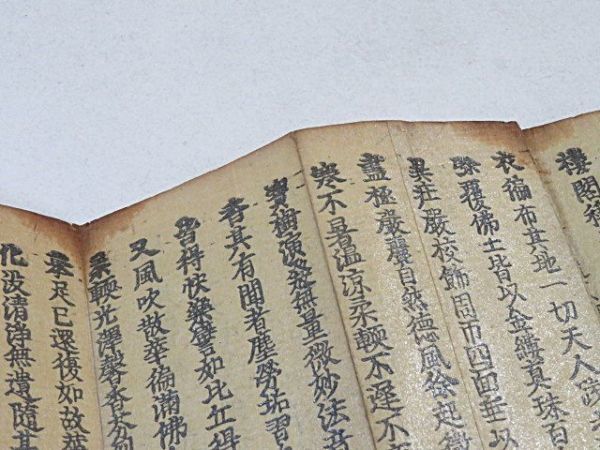 樓閣
衣徧布其地一切天人踐
彌覆佛土皆以金縷真珠百
異莊嚴校飾周帀四面垂以
盡極嚴麗自然德風徐起微
寒不暑温涼柔輭不遲不
寶樹演發無量微妙法音
香其有聞者塵勞垢習
皆得快樂譬如比丘得
又風吹散華徧滿佛
柔輭光澤馨香芬烈
舉足已還復如故華
化没清淨無遺隨其